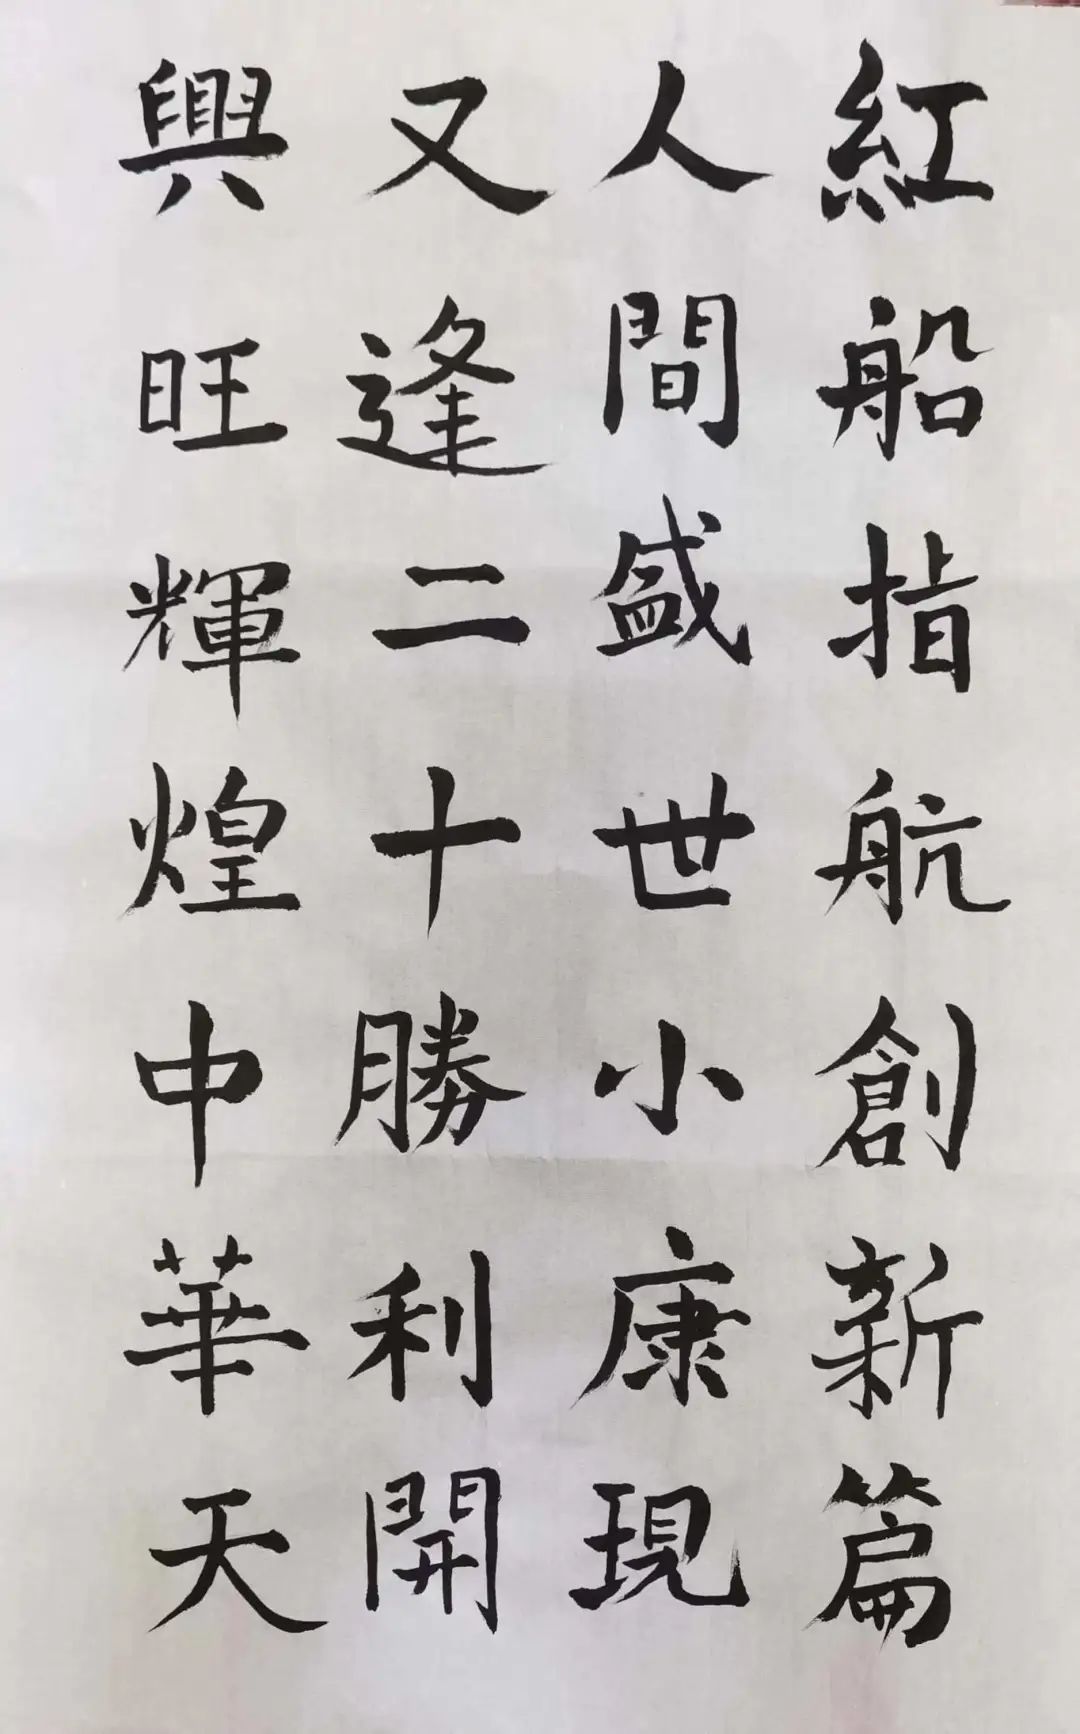 紅船指航創新篇
人間盛世小康現
又逢二十勝利開
興旺輝煌中華天